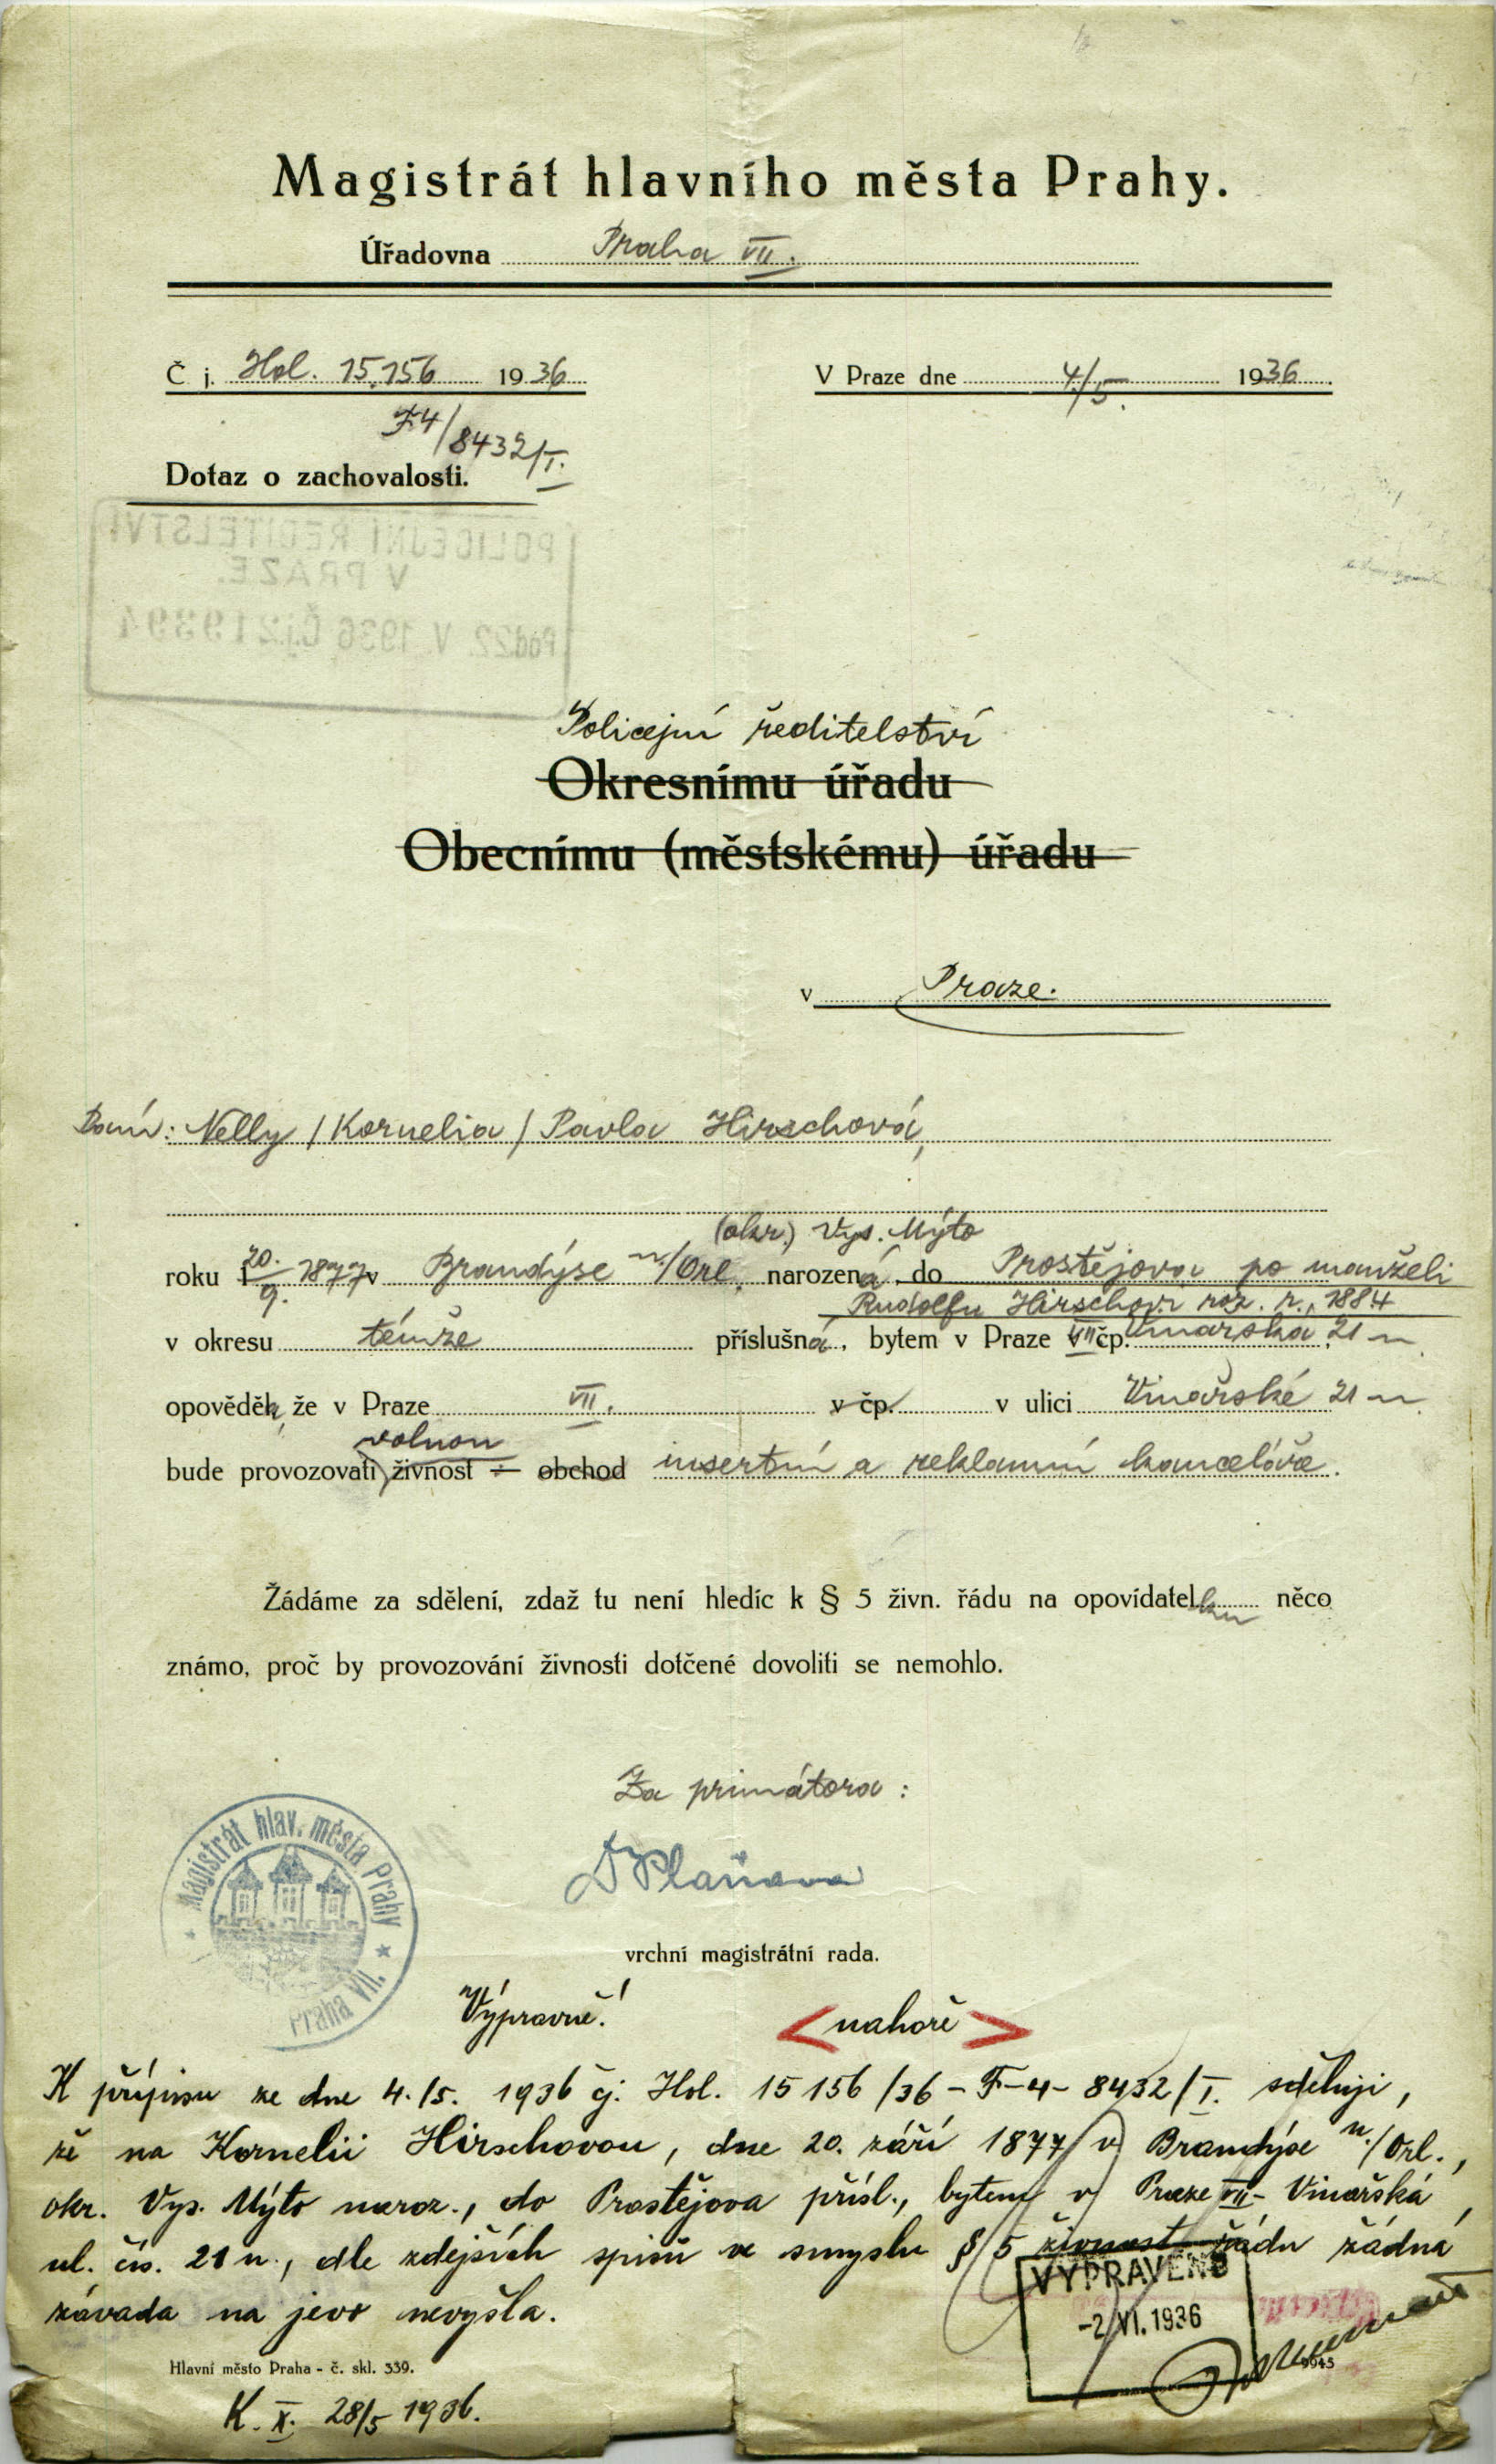 Magistrát hlavního města Prahy.
Úřadovna Praha VII.
Č j. Hol. 15.156 1936
V Praze dne 4./5. 1936
F4/8432/I.
Dotaz o zachovalosti.
POLICEJNÍ ŘEDITELSTVÍ
V PRAZE.
Pod. 22. V. 1936 Č.j. 219394
Policejní ředitelství
Okresnímu úřadu
Obecnímu (městskému) úřadu
v Praze.
Paní: Nelly /Kornelia/ Pavla Hirschová,
(okr.) Vys. Mýto
roku 20./9. 1877 v Brandýse n./Orl. narozená, do Prostějova po manželi
Rudolfu Hirschovi nar. r. 1884
v okresu témže příslušná, bytem v Praze VII čp. Vinařská 21 n.
opověděla, že v Praze VII. v čp. v ulici Vinařské 21 n.
volnou
bude provozovati živnost – obchod insertní a reklamní kanceláře.
Žádáme za sdělení, zdaž tu není hledíc k § 5 živn. řádu na opovídatelku něco
známo, proč by provozování živnosti dotčené dovoliti se nemohlo.
Za primátora:
Magistrát hlav. města Prahy
Praha VII.
vrchní magistrátní rada.
Výpravně!
<nahoře>
K přípisu ze dne 4./5. 1936 čj. Hol. 15156/36 – F-4- 8432/I. sděluji,
že na Kornelii Hirschovou, dne 20. září 1877 v Brandýse n./Orl.,
okr. Vys. Mýto naroz., do Prostějova přísl., bytem v Praze VII- Vinařská
ul. čís. 21 n., dle zdejších spisů ve smyslu § 5 živnost. řádu žádná
závada na jevo nevyšla.
VYPRAVENO
-2. VI. 1936
Hlavní město Praha - č. skl. 339.
K. X. 28/5 1936.